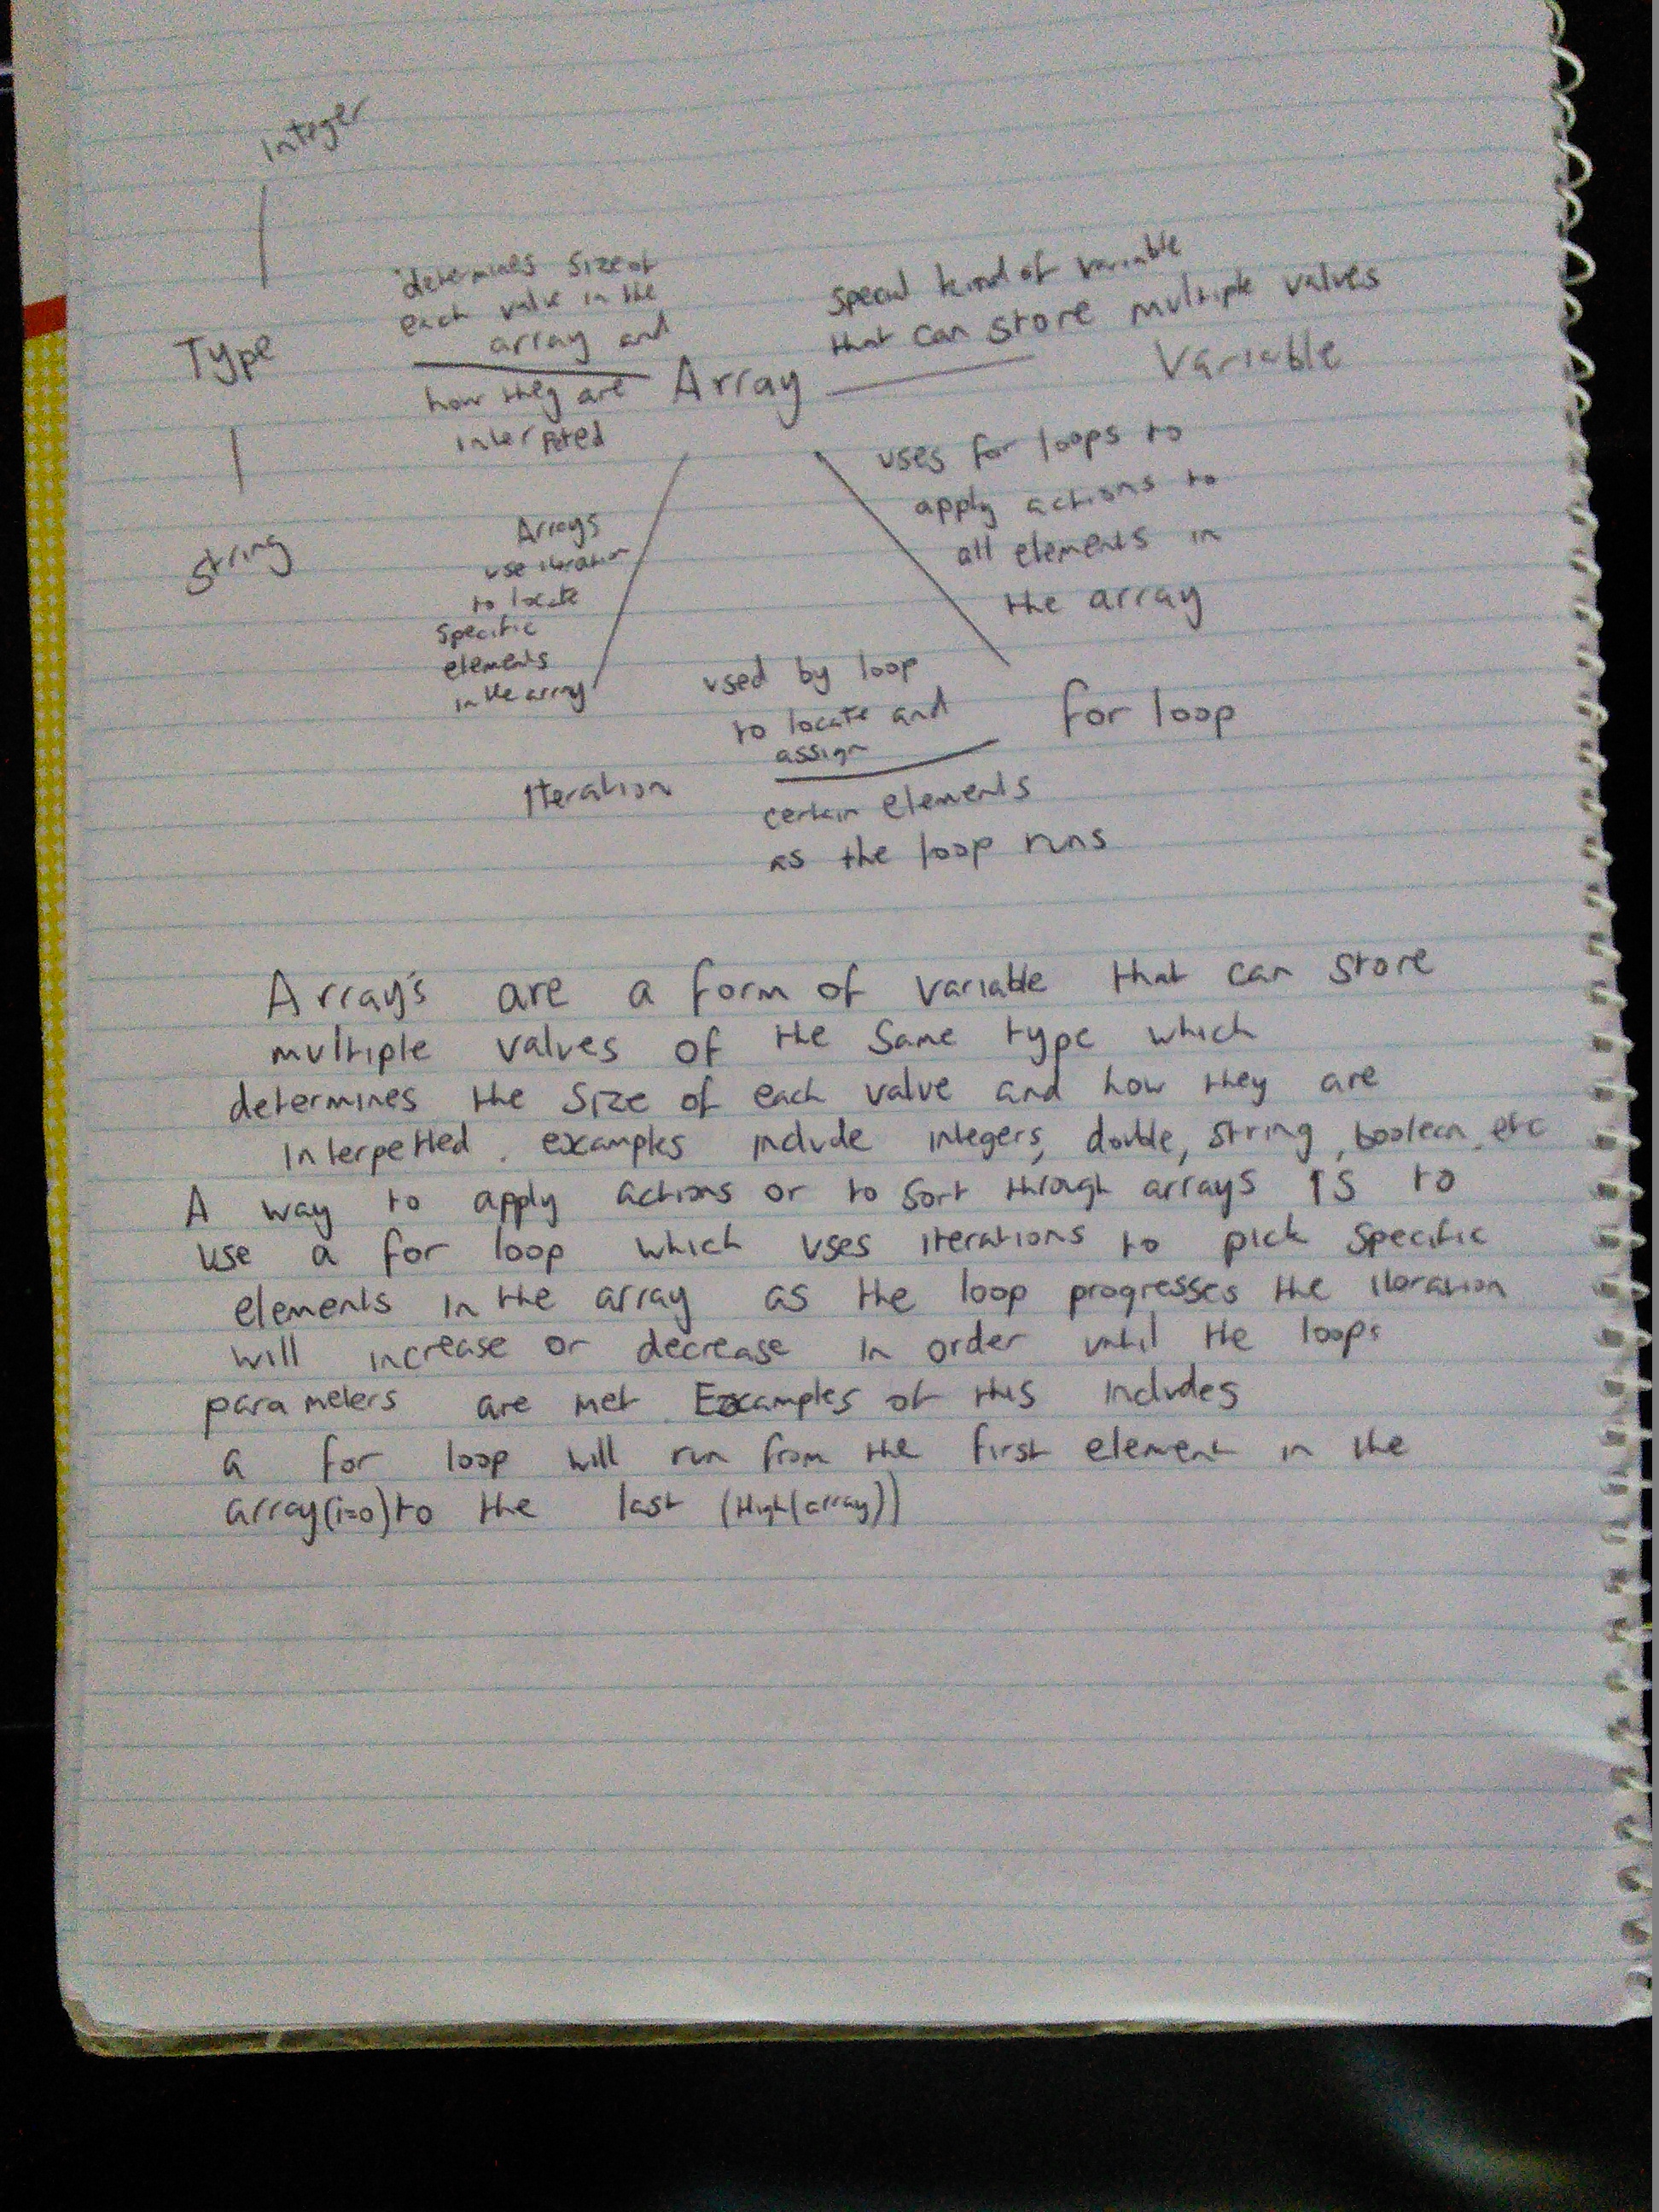 Integer
Type
String
determines size of
each value in the
array and
how they are
interpeted
Array
special kind of variable
that can store multiple values
Variable
uses for loops to
apply actions to
all elements in
the array
Arrays
use iteration
to locate
specific
elements
in the array
used by loop
to locate and
assign
certain elements
as the loop runs
for loop
Iteration
Array's are a form of variable that can store
multiple values of the same type which
determines the size of each value and how they are
interpetted. examples include integers, double, string, boolean, etc
A way to apply actions or to sort through arrays is to
use a for loop which uses iterations to pick specific
elements in the array as the loop progresses the iteration
will increase or decrease in order until the loops
parameters are met. Examples of this includes
a for loop will run from the first element in the
array(i=0) to the last (High(array))